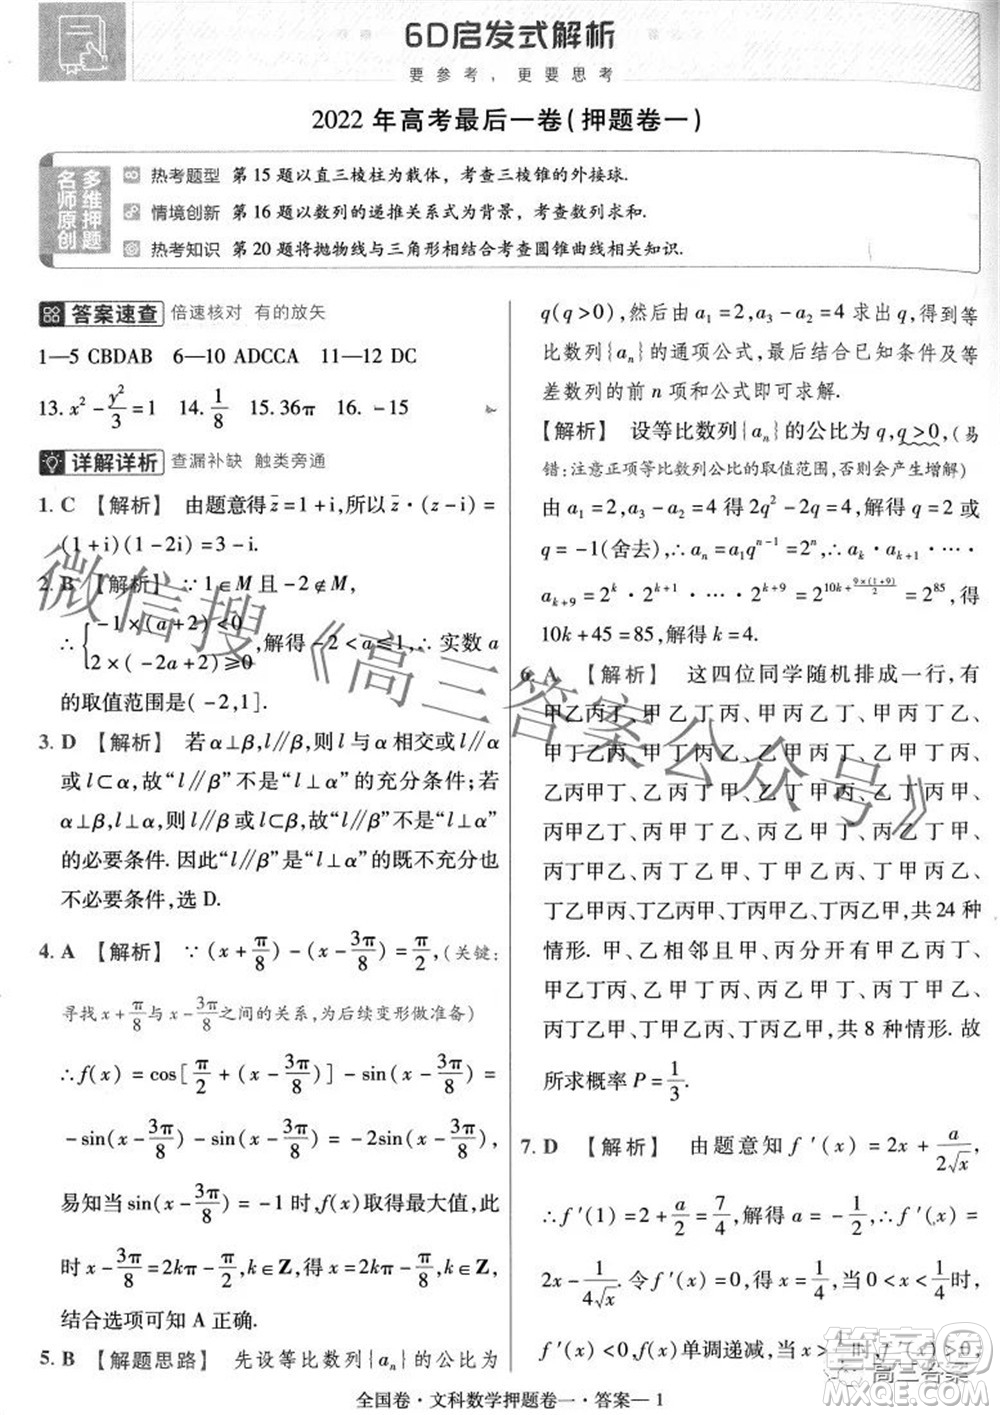 6D启发式解析
要参考，更要思考
2022年高考最后一卷(押题卷一)
名师原创
多维押题
热考题型 第15题以直三棱柱为载体，考查三棱锥的外接球.
情境创新 第16题以数列的递推关系式为背景，考查数列求和.
热考知识 第20题将抛物线与三角形相结合考查圆锥曲线相关知识.
答案速查 倍速核对 有的放矢
1—5 CBDAB 6—10 ADCCA 11—12 DC
13. x² - y²/3 = 1 14. 1/8 15. 36π 16. -15
详解详析 查漏补缺 触类旁通
1. C 【解析】 由题意得z̄=1+i,所以z̄·(z-i)=
(1+i)(1-2i)=3-i.
2. B 【解析】 ∵1∈M且-2∉M,
∴{-1×(a+2)<0
2×(-2a+2)≥0,解得-2<a≤1,∴实数a
的取值范围是(-2,1].
3. D 【解析】 若α⊥β,l∥β,则l与α相交或l∥α
或l⊂α,故“l∥β”不是“l⊥α”的充分条件;若
α⊥β,l⊥α,则l∥β或l⊂β,故“l∥β”不是“l⊥α”
的必要条件.因此“l∥β”是“l⊥α”的既不充分也
不必要条件,选D.
4. A 【解析】 ∵(x+π/8)-(x-3π/8)=π/2,(关键:
寻找x+π/8与x-3π/8之间的关系,为后续变形做准备)
∴f(x)=cos[π/2+(x-3π/8)]-sin(x-3π/8)=
-sin(x-3π/8)-sin(x-3π/8)=-2sin(x-3π/8),
易知当sin(x-3π/8)=-1时,f(x)取得最大值,此
时x-3π/8=2kπ-π/2,k∈Z,得x=2kπ-π/8,k∈Z,
结合选项可知A正确.
5. B 【解题思路】 先设等比数列{aₙ}的公比为
q(q>0),由a₁=2,a₃-a₂=4求出q,得到等
比数列{aₙ}的通项公式,最后结合已知条件及等
差数列的前n项和公式即可求解.
【解析】 设等比数列{aₙ}的公比为q,q>0,(易
错:注意正项等比数列公比的取值范围,否则会产生增解)
由a₁=2,a₃-a₂=4得2q²-2q=4,解得q=2或
q=-1(舍去),∴aₙ=a₁qⁿ⁻¹=2ⁿ,∴aₖ·aₖ₊₁·…·
aₖ₊₉=2ᵏ·2ᵏ⁺¹·…·2ᵏ⁺⁹=2^(10k+9×(1+9)/2)=2⁸⁵,得
10k+45=85,解得k=4.
6. A 【解析】 这四位同学随机排成一行,有
甲乙丙丁、甲乙丁丙、甲丙乙丁、甲丙丁乙、
甲丁乙丙、甲丁丙乙、乙甲丙丁、
乙丙甲丁、
丙甲乙丁、
丙丁乙甲、
丁乙甲丙、丁乙丙甲、丁丙甲乙、丁丙乙甲,共24种
情形.甲、乙相邻且甲、丙不相邻的有丙乙甲丁、
丙丁乙甲、丁丙乙甲,共8种情形.故
所求概率P=1/3.
7. D 【解析】 由题意知f′(x)=2x+a/(2√x),
∴f′(1)=2+a/2=7/4,解得a=-1/2,∴f′(x)=
2x-1/(4√x).令f′(x)=0,得x=1/4,当0<x<1/4时,
f′(x)<0,f(x)单调递减,当x>1/4时,f′(x)
微信搜《高三答案公众号》
答案圈
高三答案
全国卷·文科数学押题卷一·答案—1